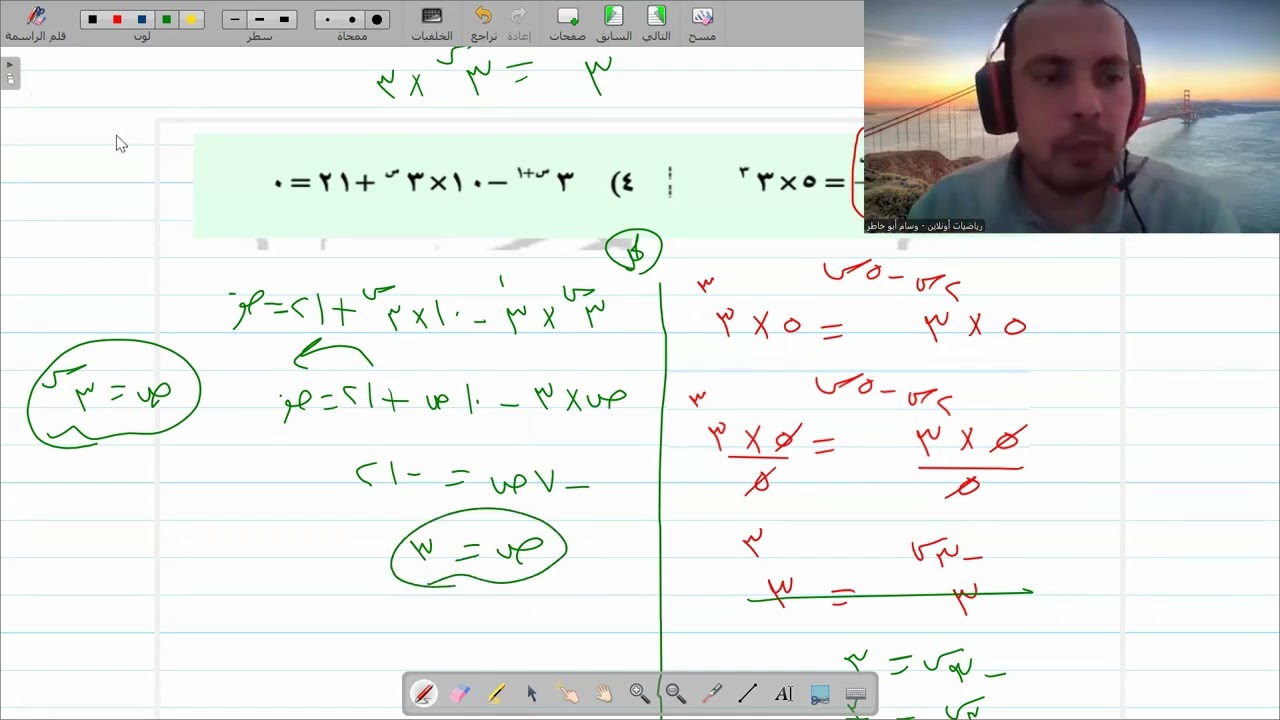 قلم الراسمة
لوت
سطر
ممحاة
الخلفيات
تراجع
إعادة
صفحات
السابق
التالي
مسح
٣ = ٣^س × ٣
٤) ٣^(س+١) − ١٠×٣^س + ٢١ = ٠
= ٥×٣^٣
رياضيات أونلاين - وسام أبو خاطر
٥ × ٣^(٢س − ٥س) = ٥ × ٣^٣
٣^س × ٣^١ − ١٠×٣^س + ٢١ = صفر
ص × ٣ − ١٠ص + ٢١ = صفر
ص = ٣^س
٥ × ٣^(٢س − ٥س) / ٥ = ٥ × ٣^٣ / ٥
−٧ص = −٢١
ص = ٣
٣^(−٣س) = ٣^٣
−٣س = ٣
AI